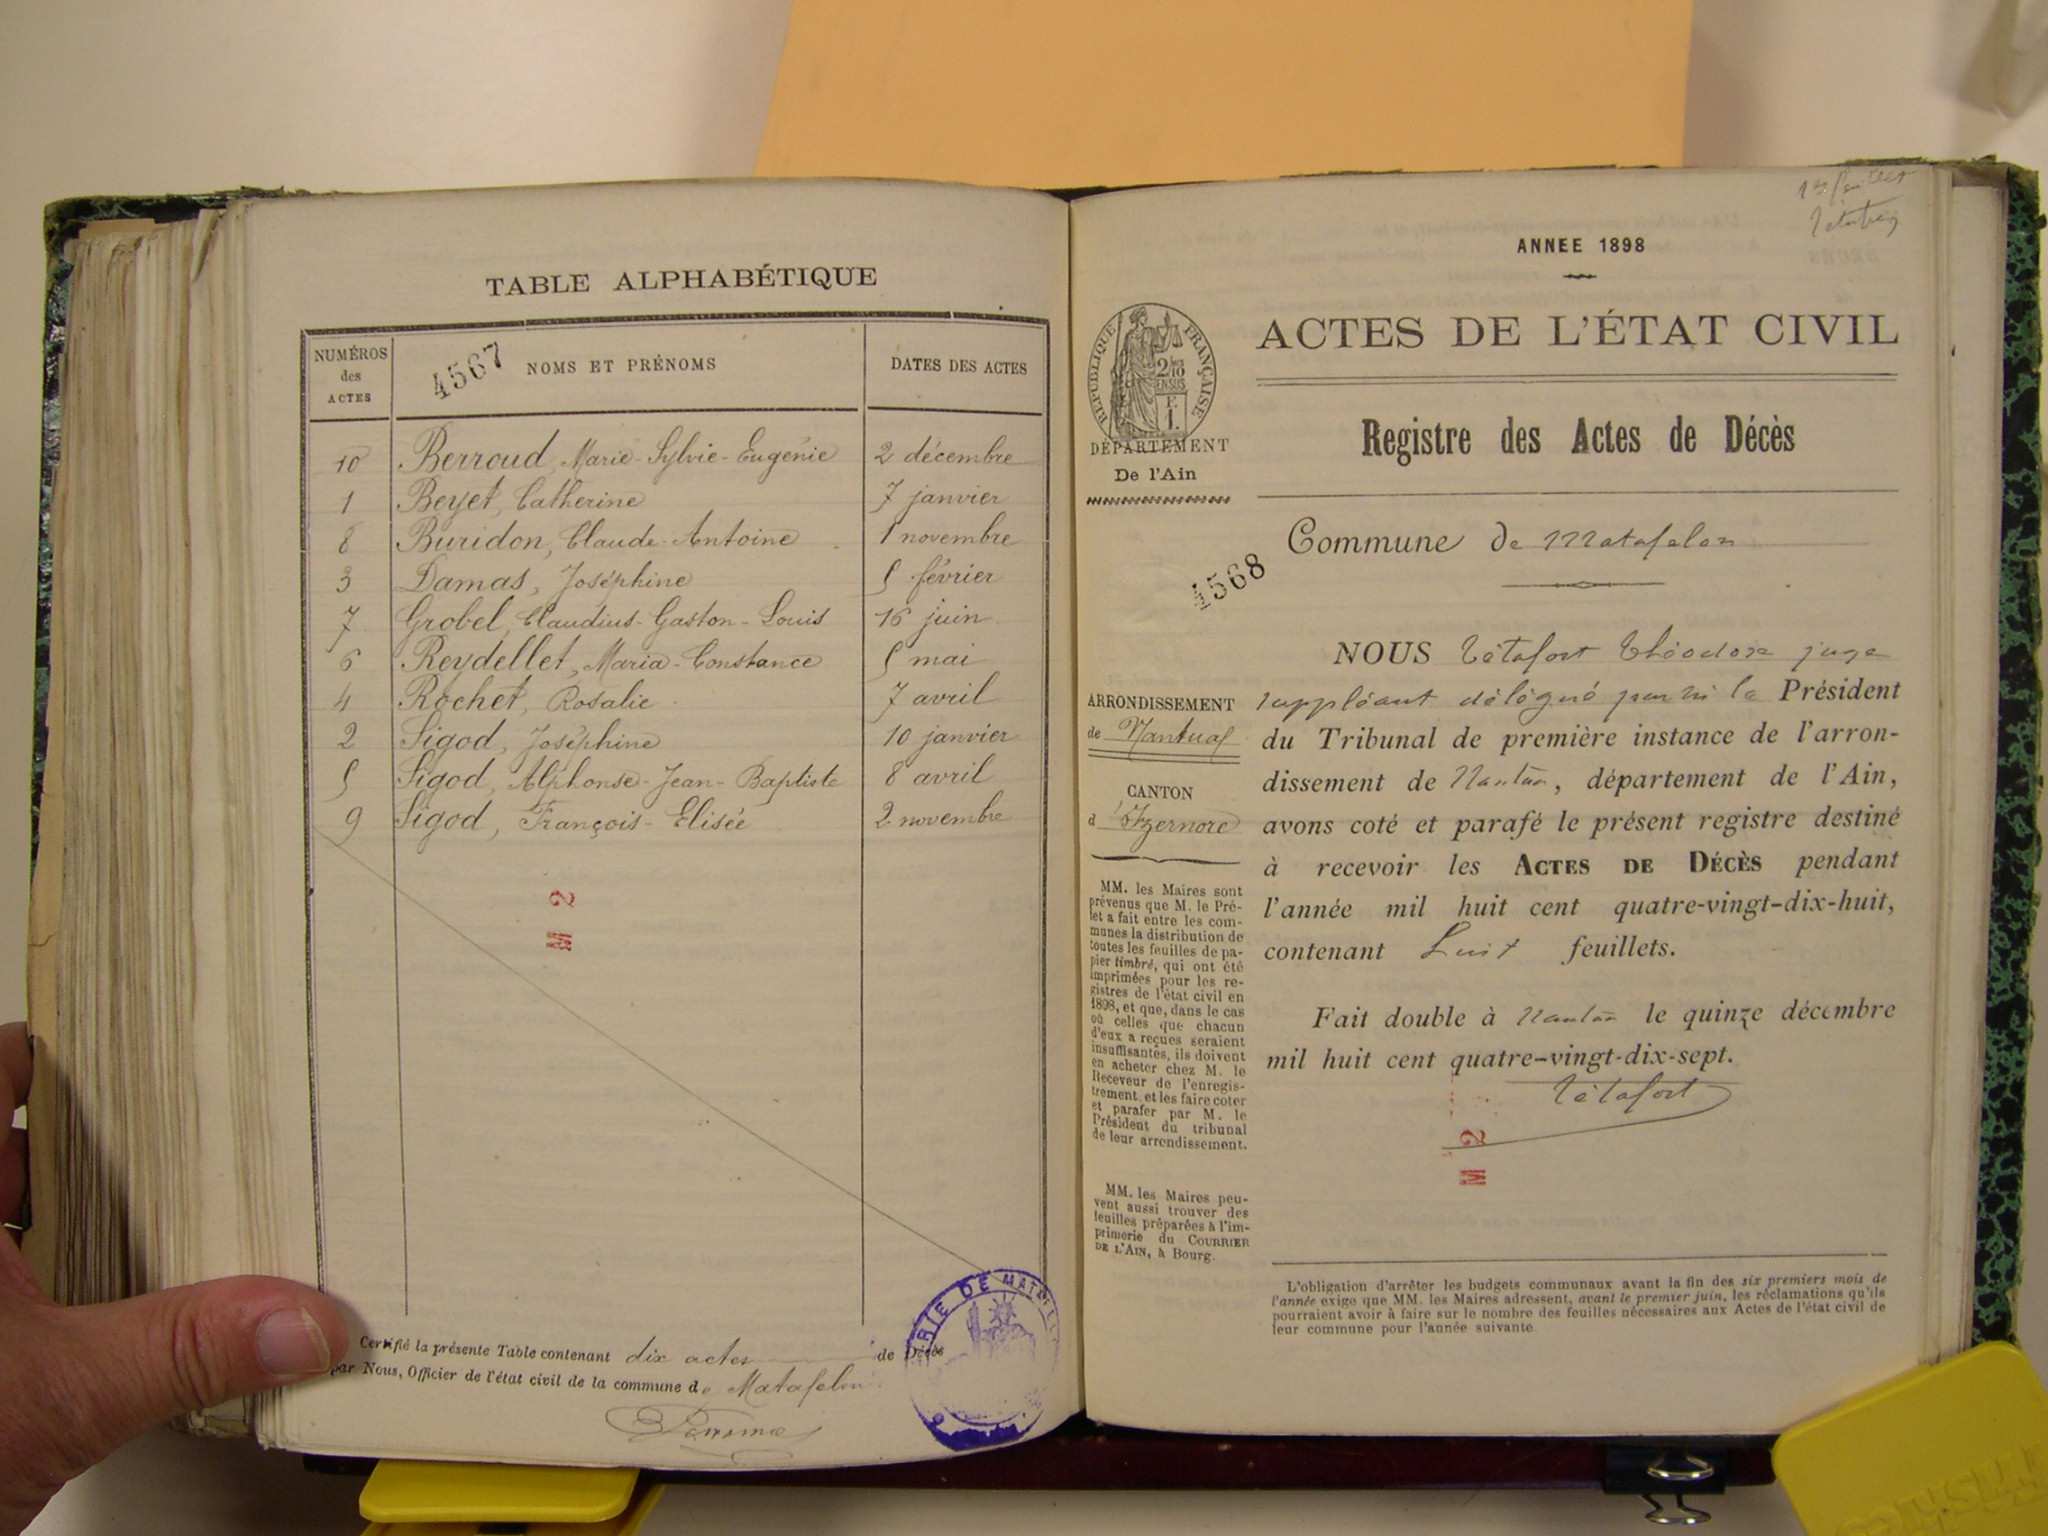 TABLE ALPHABÉTIQUE
NUMÉROS des ACTES
4567
NOMS ET PRÉNOMS
DATES DES ACTES
10 Berroud, Marie-Sylvie-Eugénie 2 décembre
1 Beyet, Catherine 7 janvier
8 Buridon, Claude-Antoine 1 novembre
3 Damas, Joséphine 5 février
7 Grobel, Claudius-Gaston-Louis 16 juin
6 Reydellet, Maria-Constance 5 mai
4 Rochet, Rosalie 7 avril
2 Sigod, Joséphine 10 janvier
5 Sigod, Alphonse-Jean-Baptiste 8 avril
9 Sigod, François-Elisée 2 novembre
M 2
Certifié la présente Table contenant dix actes de Décès
par Nous, Officier de l'état civil de la commune de Matafelon
RIE DE MAT
1er feuillet
ANNEE 1898
ACTES DE L'ÉTAT CIVIL
RÉPUBLIQUE FRANÇAISE
DÉPARTEMENT
De l'Ain
Registre des Actes de Décès
Commune de Matafelon
4568
NOUS Tétafort Théodore juge
suppléant délégué par M. le Président
du Tribunal de première instance de l'arron-
dissement de Nantua, département de l'Ain,
avons coté et parafé le présent registre destiné
à recevoir les ACTES DE DÉCÈS pendant
l'année mil huit cent quatre-vingt-dix-huit,
contenant huit feuillets.
Fait double à Nantua le quinze décembre
mil huit cent quatre-vingt-dix-sept.
Tétafort
M 2
ARRONDISSEMENT
de Nantua
CANTON
d'Izernore
MM. les Maires sont
prévenus que M. le Pré-
fet a fait entre les com-
munes la distribution de
toutes les feuilles de pa-
pier timbré, qui ont été
imprimées pour les re-
gistres de l'état civil en
1898, et que, dans le cas
où celles que chacun
d'eux a reçues seraient
insuffisantes, ils doivent
en acheter chez M. le
Receveur de l'enregis-
trement, et les faire coter
et parafer par M. le
Président du tribunal
de leur arrondissement.
MM. les Maires peu-
vent aussi trouver des
feuilles préparées à l'im-
primerie du COURRIER
DE L'AIN, à Bourg.
L'obligation d'arrêter les budgets communaux avant la fin des six premiers mois de
l'année exige que MM. les Maires adressent, avant le premier juin, les réclamations qu'ils
pourraient avoir à faire sur le nombre des feuilles nécessaires aux Actes de l'état civil de
leur commune pour l'année suivante